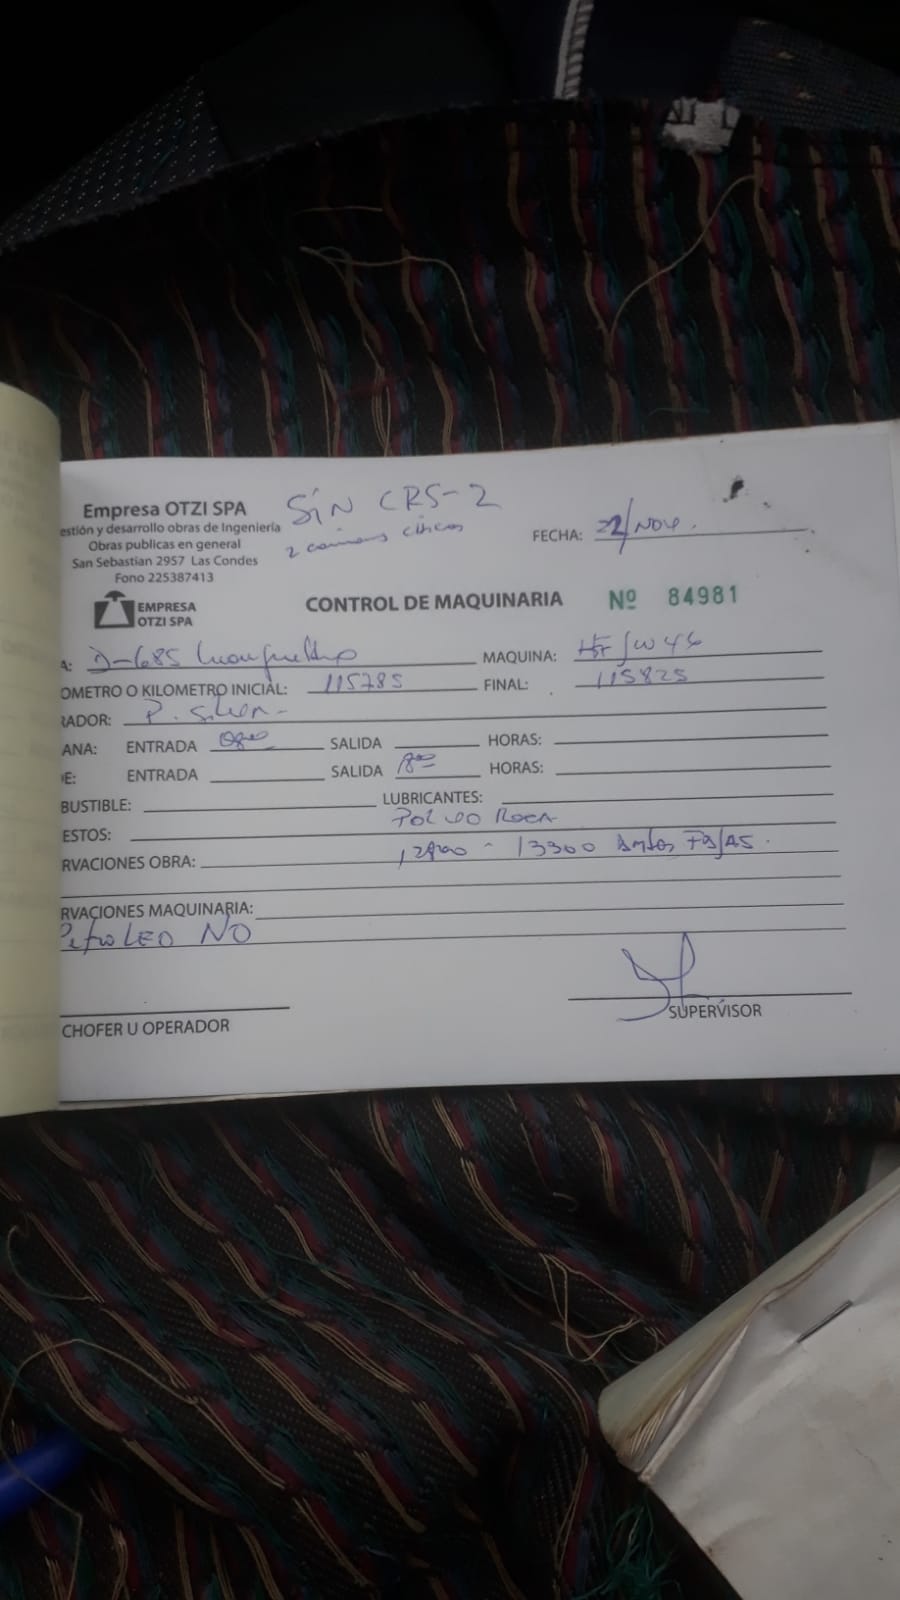 Empresa OTZI SPA
estión y desarrollo obras de Ingeniería
Obras publicas en general
San Sebastian 2957 Las Condes
Fono 225387413
SiN CRS-2
2 camiones
FECHA: 22/Nov.
EMPRESA
OTZI SPA
CONTROL DE MAQUINARIA Nº 84981
A: D-685
MAQUINA:
OMETRO O KILOMETRO INICIAL: 115785 FINAL: 115825
RADOR: P. Silva
ANA: ENTRADA SALIDA HORAS:
DE: ENTRADA SALIDA 1800 HORAS:
BUSTIBLE: LUBRICANTES:
ESTOS: POLVO ROCA
RVACIONES OBRA: 12900 - 13300 Ambas
RVACIONES MAQUINARIA:
Petroleo NO
CHOFER U OPERADOR
SUPERVISOR